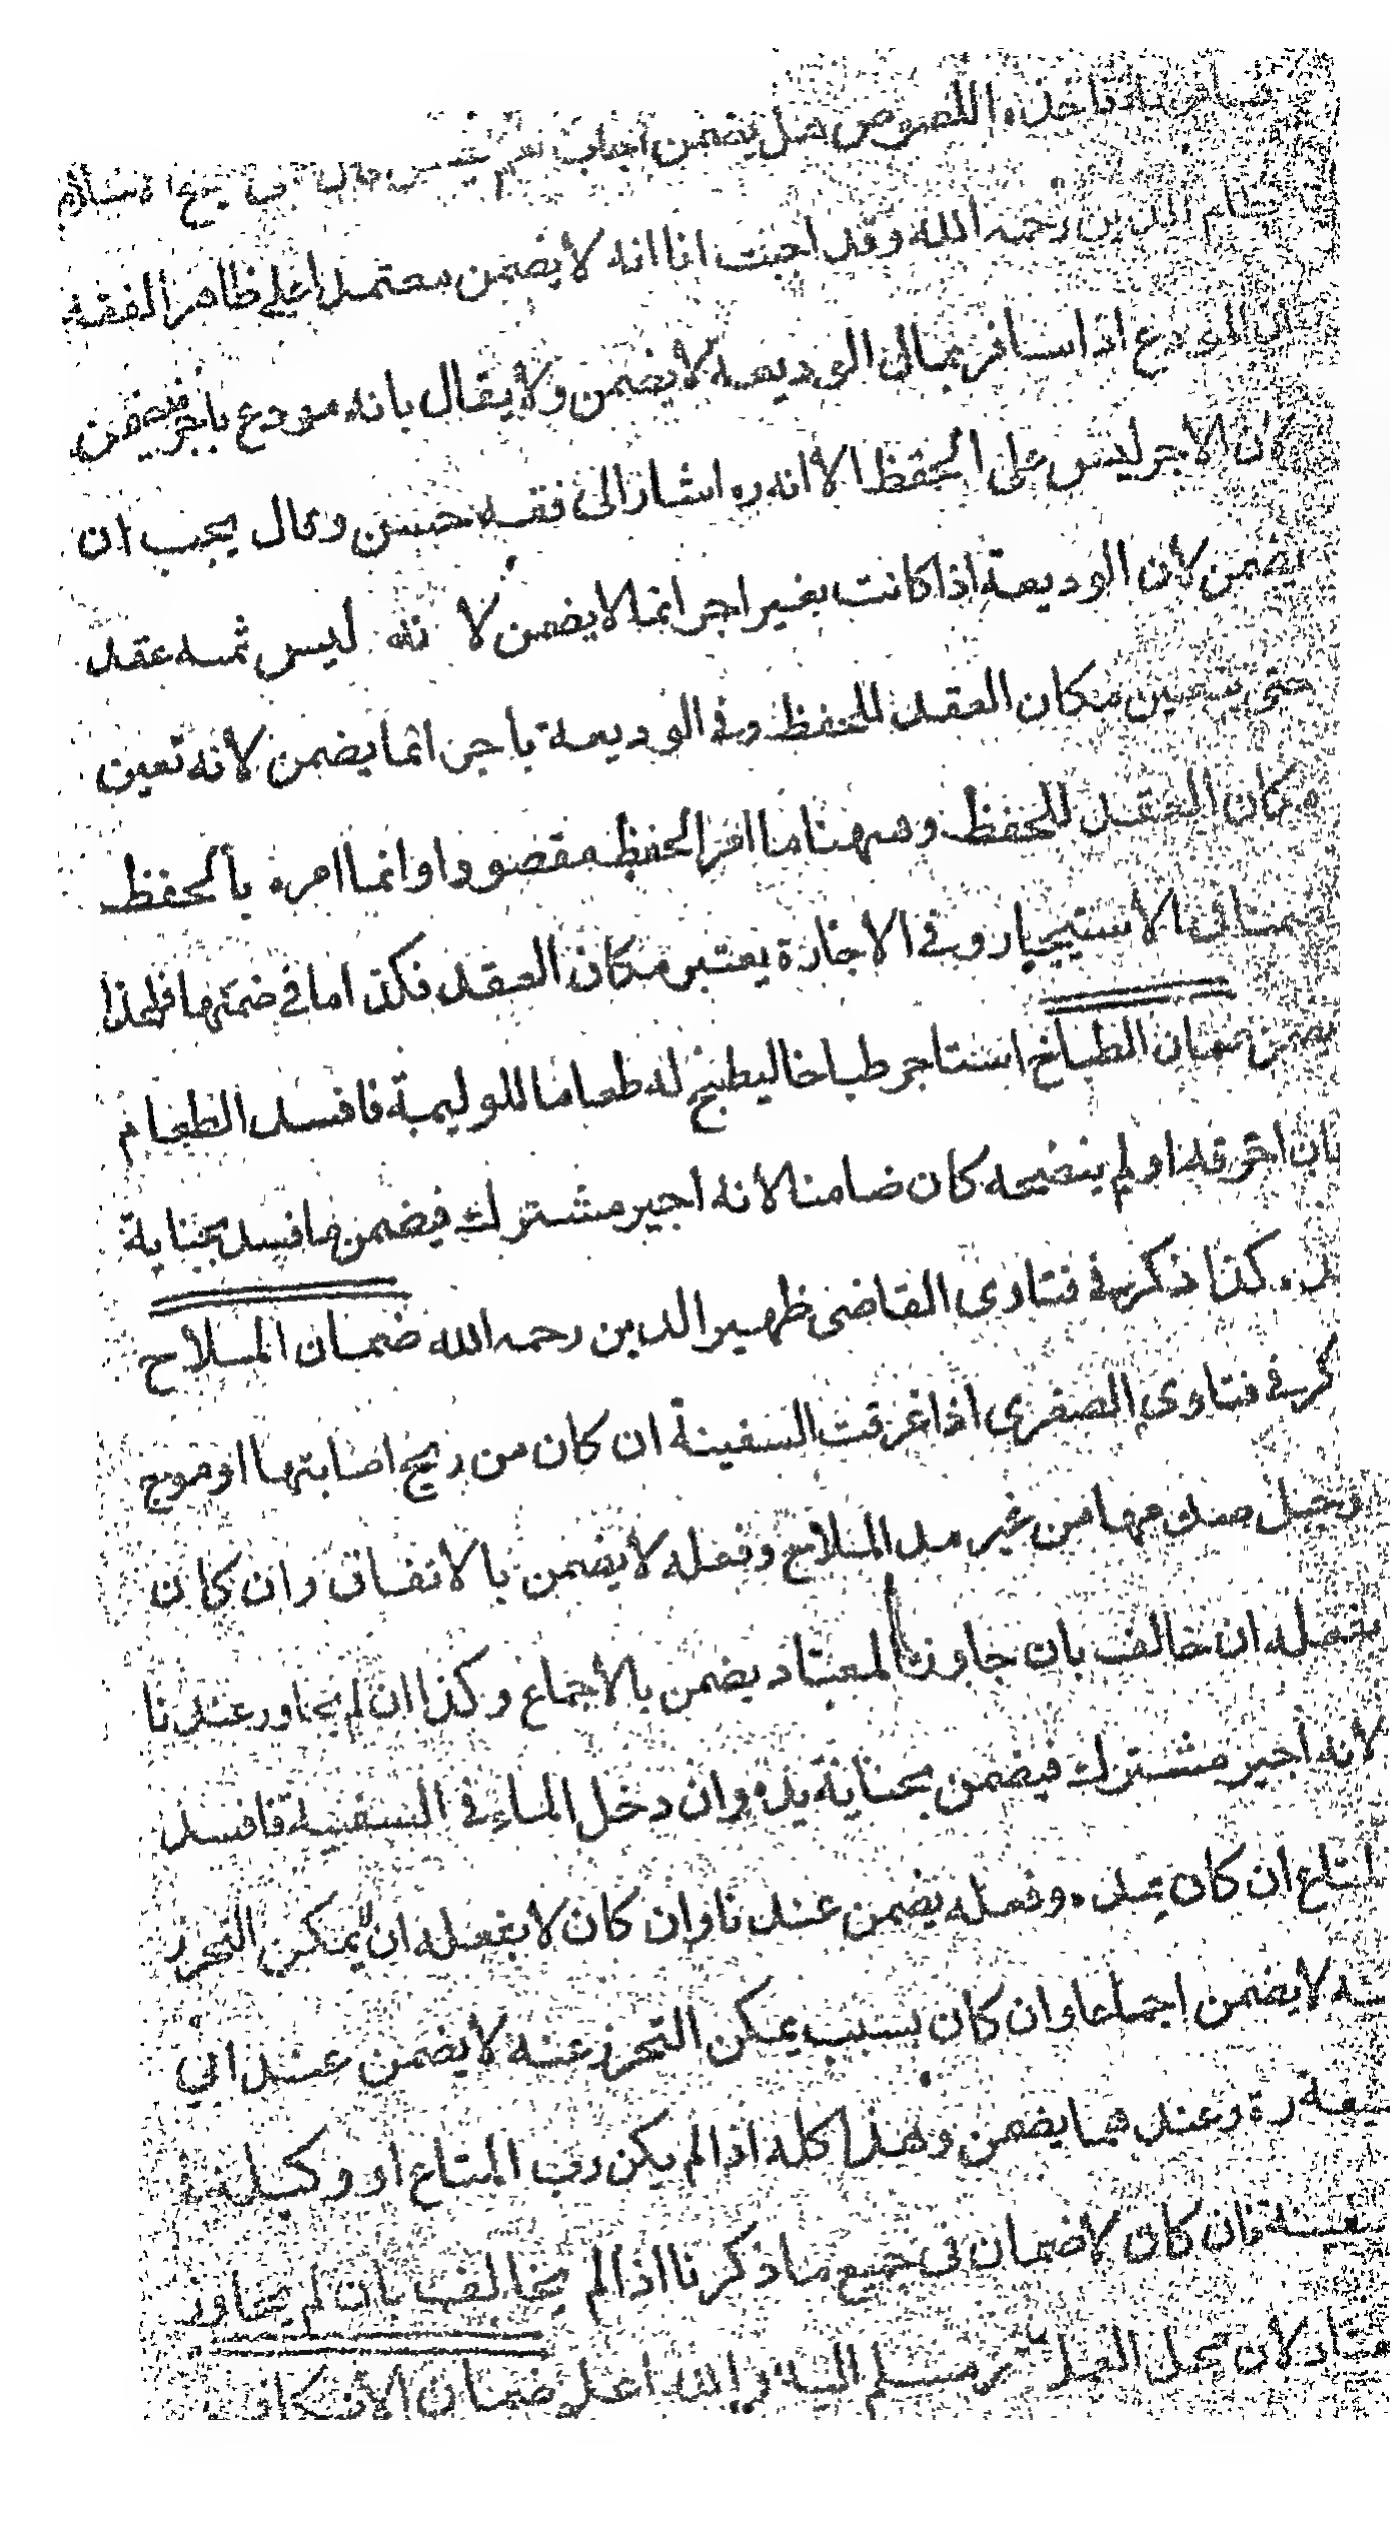 فاخذه اللصوص هل يضمن اجاب نعم
نظام الدين رحمه الله وقد اجبت انا انه لا يضمن معتمدا على ظاهر الفقه
ان المودع اذا سافر بمال الوديعة لا يضمن ولا يقال بانه مودع باجر فيضمن
لان الاجر ليس على الحفظ الا انه ره اشار الى فقه حسن وقال يجب ان
يضمن لان الوديعة اذا كانت بغير اجر انما لا يضمن لا نه ليس ثمه عقد
حتى يتعين مكان العقد للحفظ وفي الوديعة باجر انما يضمن لانه تعين
مكان العقد للحفظ وههنا ما امر الحفظ مقصودا وانما امره بالحفظ
الاستيجار وفي الاجارة يعتبر مكان العقد فكذا ما في ضمنها فلهذا
يضمن ضمان الطباخ استاجر طباخا ليطبخ له طعاما للوليمة فافسد الطعام
بان احرقه او لم ينضجه كان ضامنا لانه اجير مشترك فيضمن ما فسد بجناية
يده كذا ذكره في فتاوى القاضى ظهير الدين رحمه الله ضمان الملاح
ذكر في فتاوى الصغرى اذا غرقت السفينة ان كان من ريح اصابتها او موج
او جبل صدمها من غير مد الملاح وفعله لا يضمن بالاتفاق وان كان
بفعله ان خالف بان جاوز المعتاد يضمن بالاجماع وكذا ان لم يجاوز عندنا
لانه اجير مشترك فيضمن بجناية يده وان دخل الماء في السفينة فافسد
المتاع ان كان بيده وفعله يضمن عندنا وان كان لا بفعله ان لم يمكن التحرز
عنه لا يضمن اجماعا وان كان بسبب يمكن التحرز عنه لا يضمن عند ابي
حنيفة ره وعندهما يضمن وهذا كله اذا لم يكن رب المتاع او وكيله في
السفينة فان كان لا ضمان في جميع ما ذكرنا اذا لم يخالف بان لم يجاوز
المعتاد لان محل العمل غير مسلم اليه والله اعلم ضمان الاسكاف